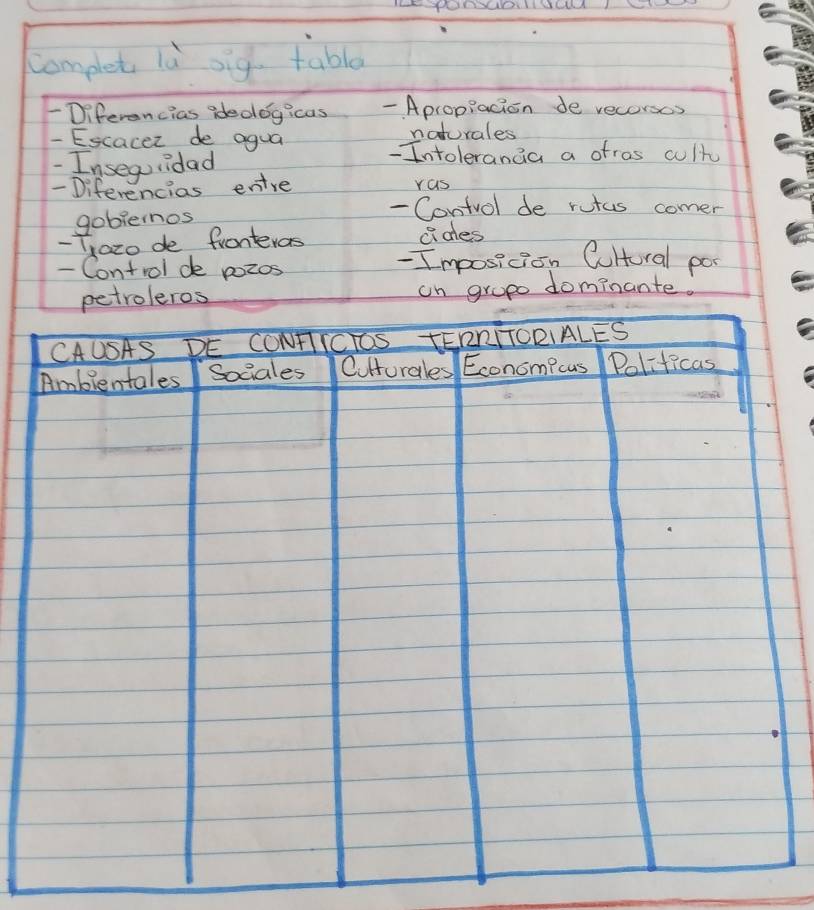 Complet la sig. tabla
- Diferencias ideológicas
- Escacez de agua
- Inseguridad
- Diferencias entre
gobiernos
- Trazo de fronteras
- Control de pozos
petroleros
- Apropiación de recursos
naturales
- Intolerancia a otras cultu
ras
- Control de rutas comer
ciales
- Imposición Cultural por
un grupo dominante.
CAUSAS DE CONFLICTOS TERRITORIALES
Ambientales Sociales Culturales Económicas Políticas